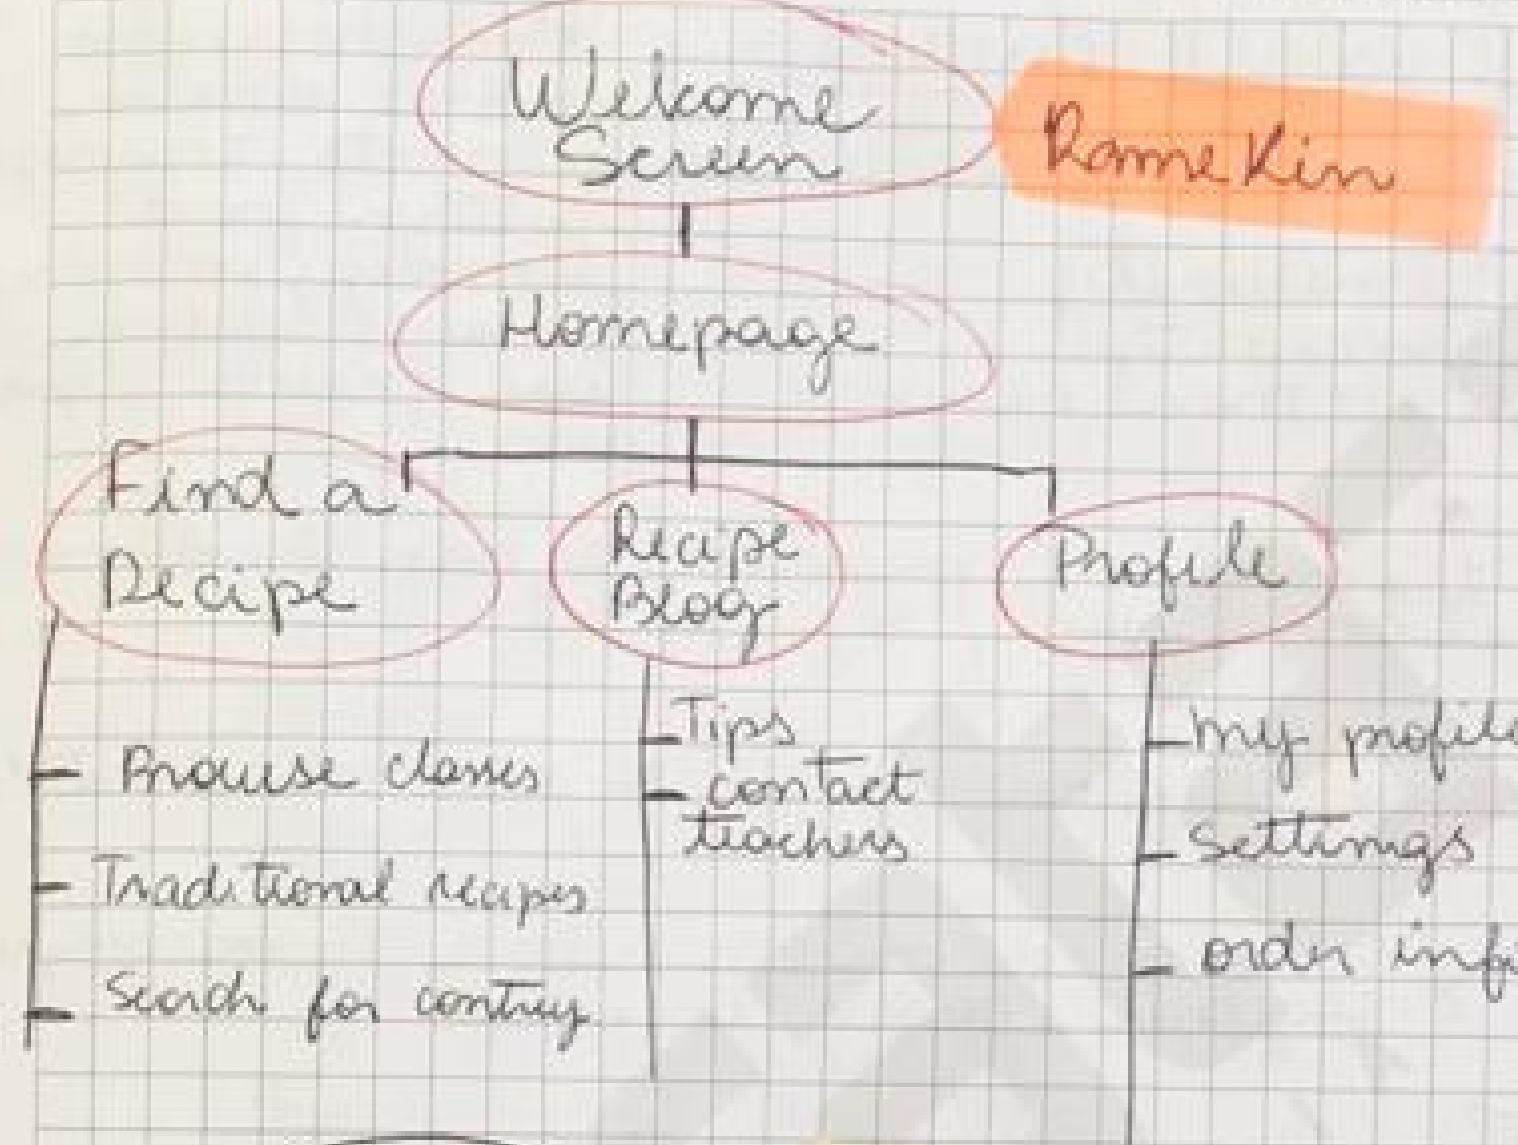 Welcome
Screen
RameKin
Homepage
Find a
Recipe
Recipe
Blog
Profile
Browse classes
Traditional recipes
Search for contry
Tips
contact
teachers
my profile
Settings
order info